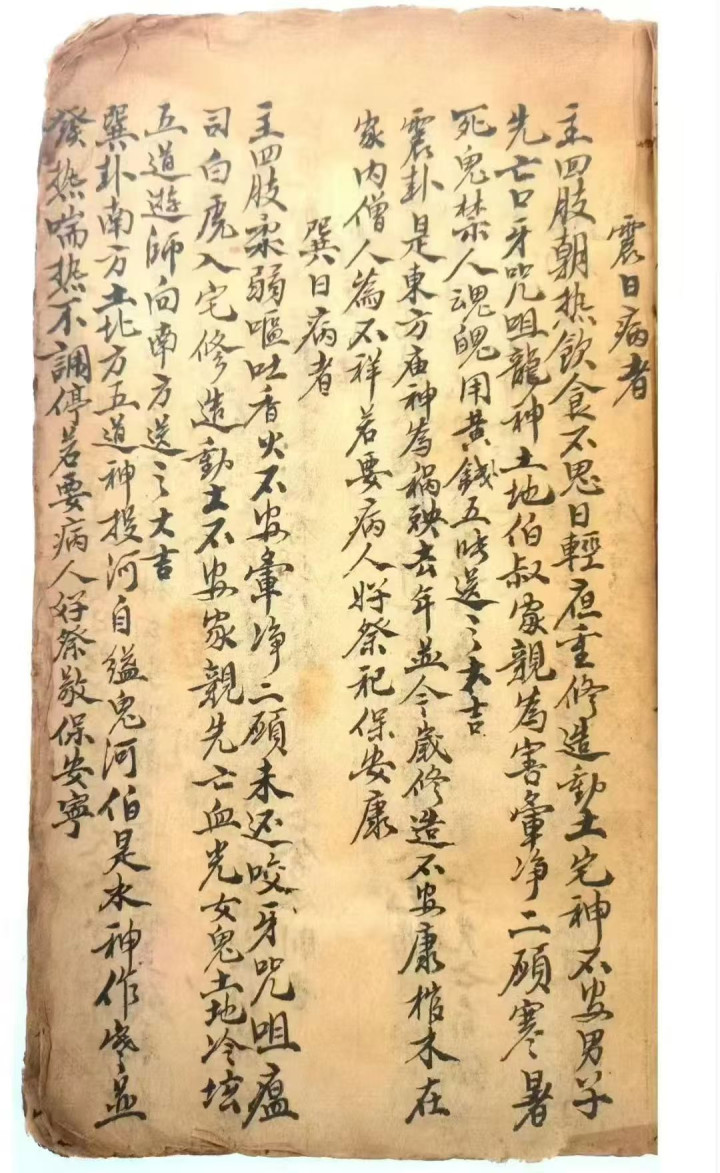 震日病者
主四肢朝热飲食不思日輕夜重修造動土宅神不安男子
先亡口牙咒咀龍神土地伯叔家親為害葷净二願寒暑
死鬼禁人魂魄用黄錢五时送之大吉
震卦是東方庙神為禍殃去年並今歲修造不安康棺木在
家内僧人為不祥若要病人好祭祀保安康
巽日病者
主四肢柔弱嘔吐香火不安葷净二願未还咬牙咒咀瘟
司白虎入宅修造動土不安家親先亡血光女鬼土地冷坛
五道遊师向南方送之大吉
巽卦南方土北方五道神投河自缢鬼河伯是水神作寒並
發热喘热不調停若要病人好祭敬保安寧